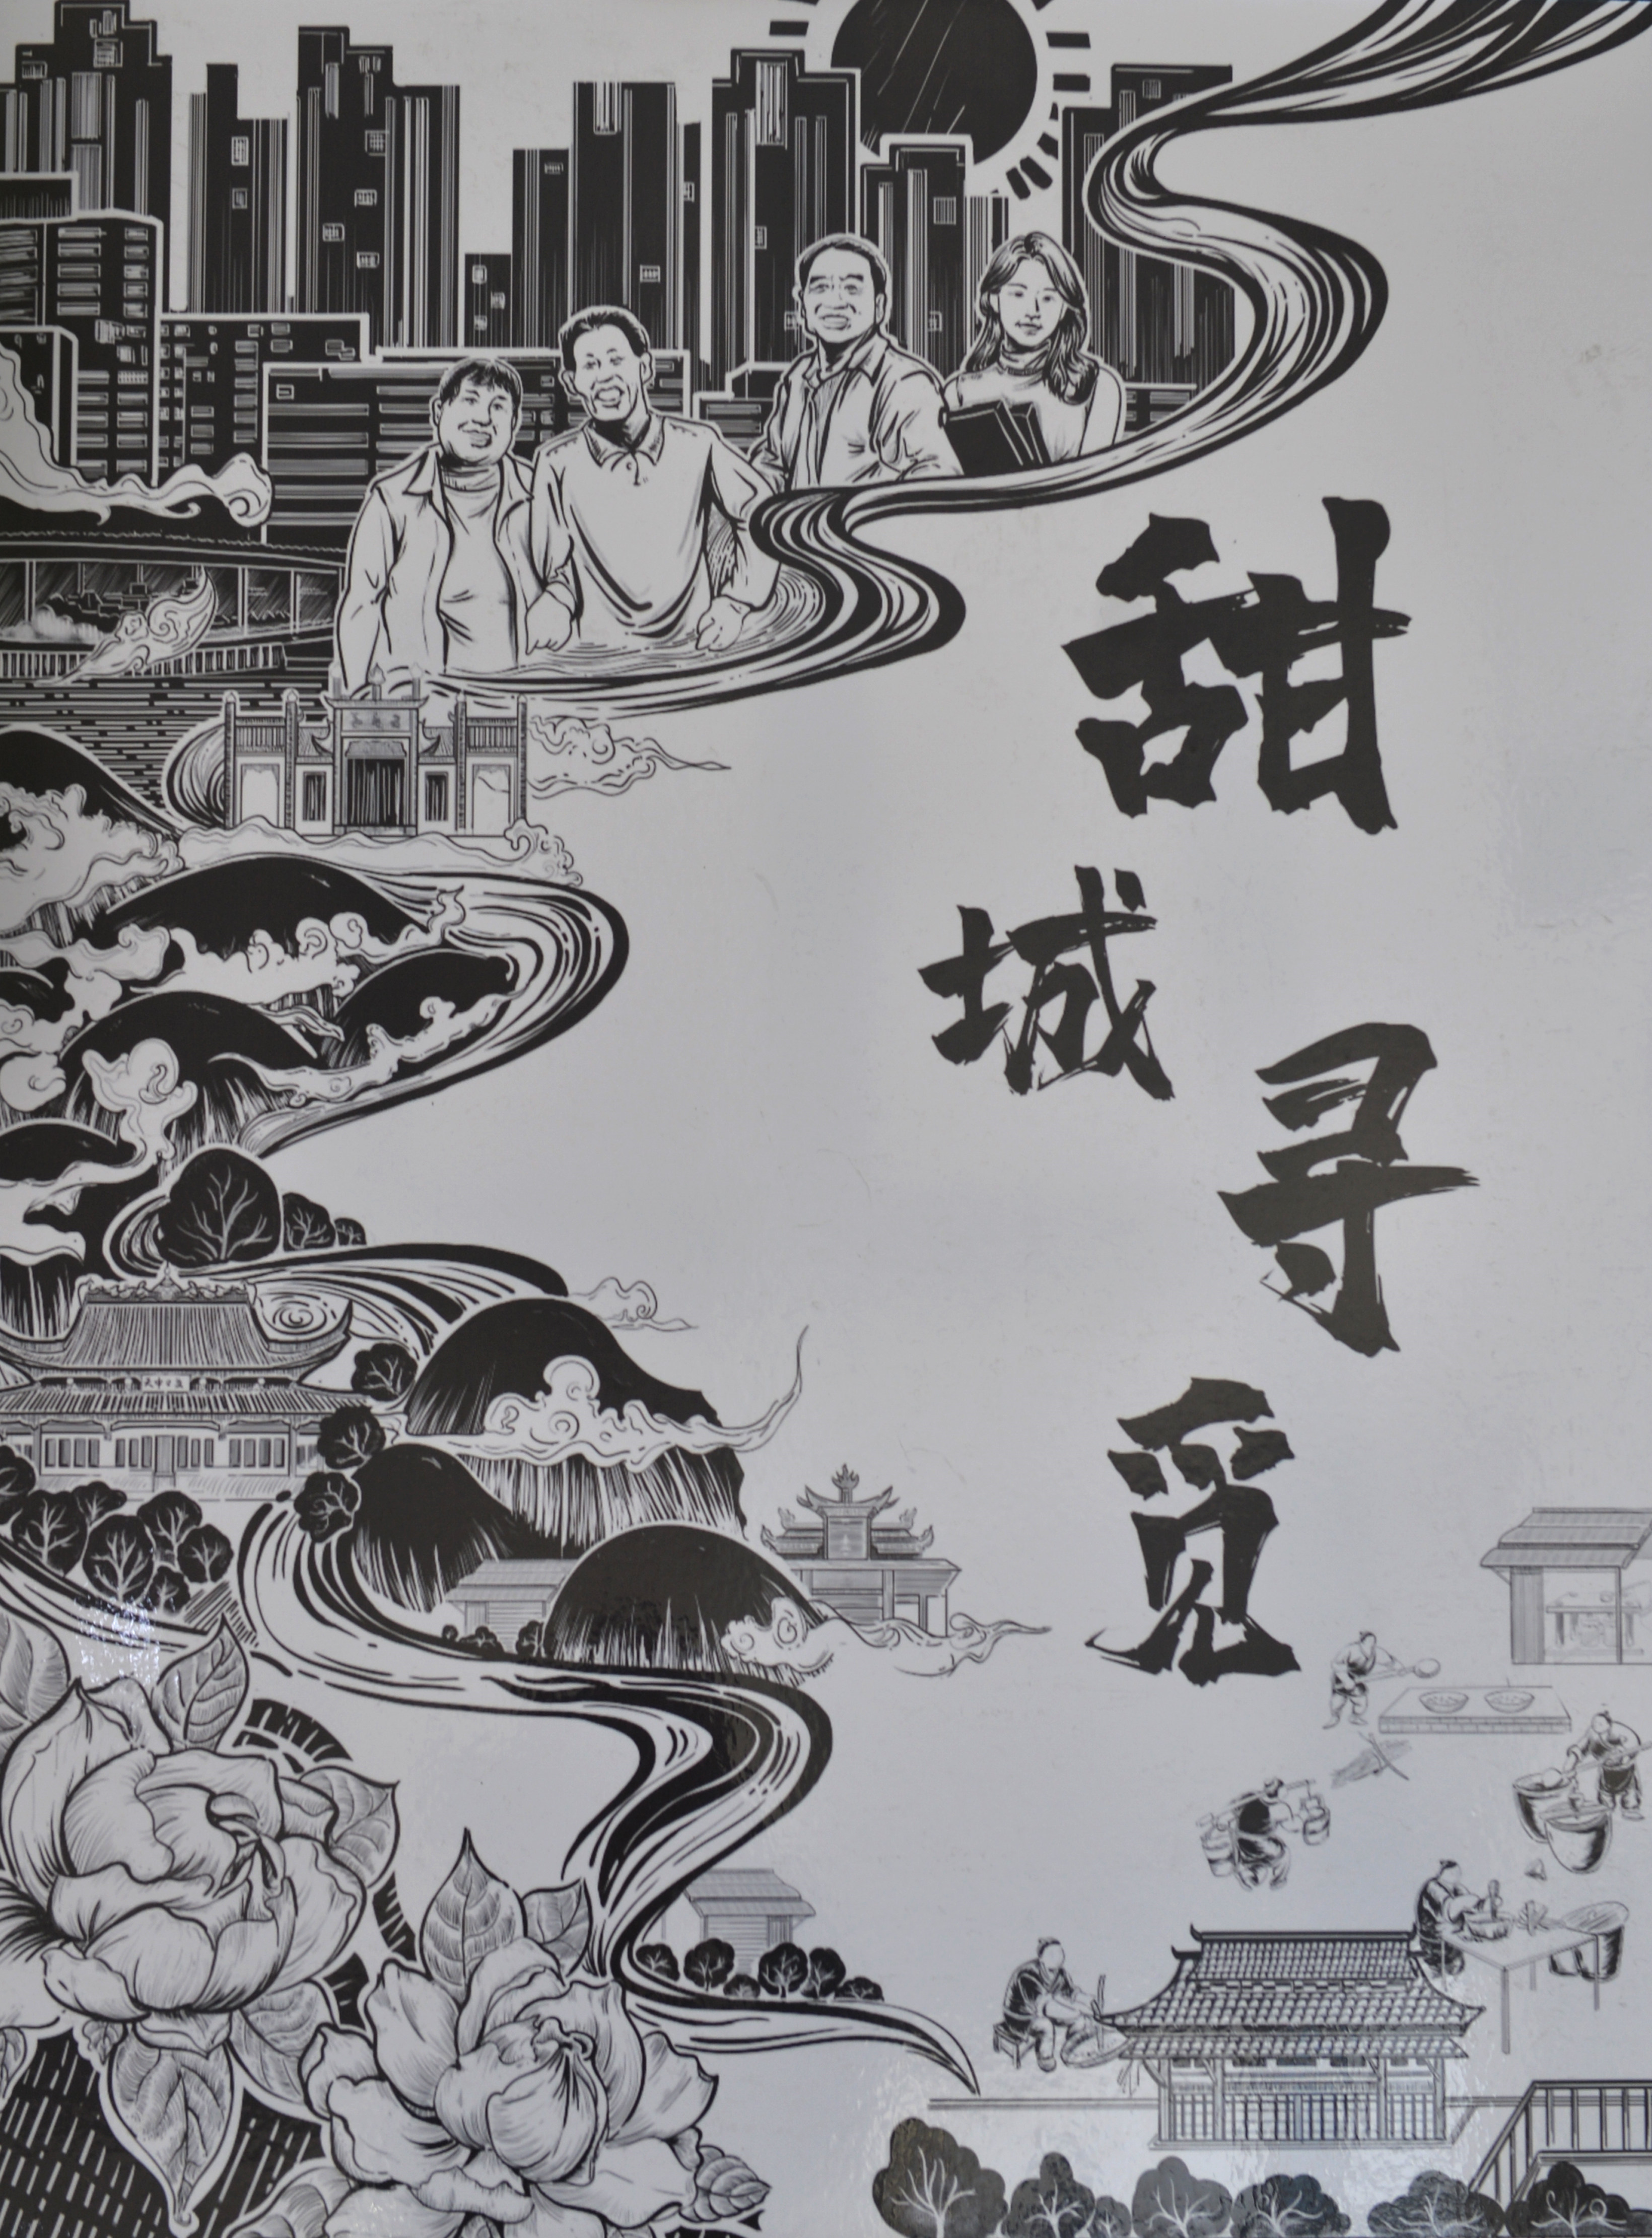 甜城寻觅